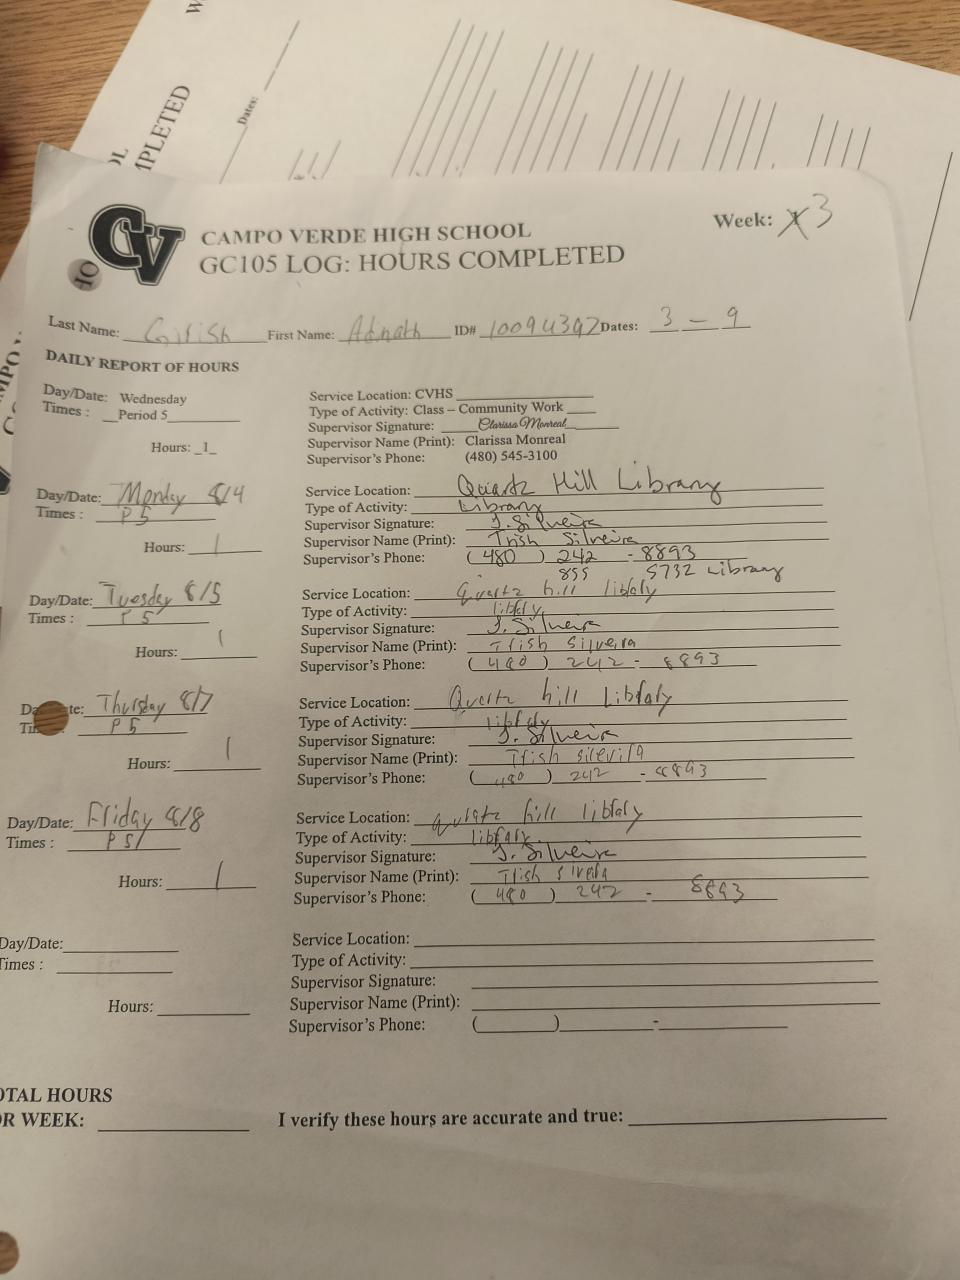 Dates:
MPLETED
CV
CAMPO VERDE HIGH SCHOOL
GC105 LOG: HOURS COMPLETED
Week: X 3
Last Name: Girish First Name: Adnath ID# 10094392 Dates: 3 - 9
DAILY REPORT OF HOURS
Day/Date: Wednesday
Times : Period 5
Hours: 1
Service Location: CVHS
Type of Activity: Class – Community Work
Supervisor Signature: Clarissa Monreal
Supervisor Name (Print): Clarissa Monreal
Supervisor's Phone: (480) 545-3100
Day/Date: Monday 8/4
Times : P 5
Hours: 1
Service Location: Quartz Hill Library
Type of Activity: Library
Supervisor Signature: T. Silveira
Supervisor Name (Print): Trish Silveira
Supervisor's Phone: (480) 242 - 8893
855 5732 Library
Day/Date: Tuesday 8/5
Times : P 5
Hours: 1
Service Location: Quartz hill libraly
Type of Activity: libraly
Supervisor Signature: T. Silveira
Supervisor Name (Print): Trish Silveira
Supervisor's Phone: (480) 242 - 8893
Day/Date: Thursday 8/7
P 5
Hours: 1
Service Location: Quartz hill Libraly
Type of Activity: libraly
Supervisor Signature: T. Silveira
Supervisor Name (Print): Trish
Supervisor's Phone: (480) 242 - 8893
Day/Date: Friday 8/8
Times : P 5
Hours: 1
Service Location: hill libraly
Type of Activity: library
Supervisor Signature: T. Silveira
Supervisor Name (Print): Trish
Supervisor's Phone: (480) 242 - 8893
Day/Date:
Times :
Hours:
Service Location:
Type of Activity:
Supervisor Signature:
Supervisor Name (Print):
Supervisor's Phone: ( ) -
OTAL HOURS
R WEEK: I verify these hours are accurate and true: